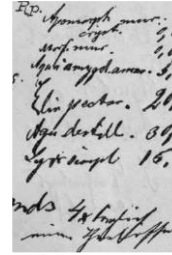 Rp.
Apomorph. mur.
cryst. 0,
Morf. mur. 0,
Aqu. amygd. amar. 5,
Elix. pector. 20
Aqu. destill. 30
Syr. simpl. 15,
4x täglich